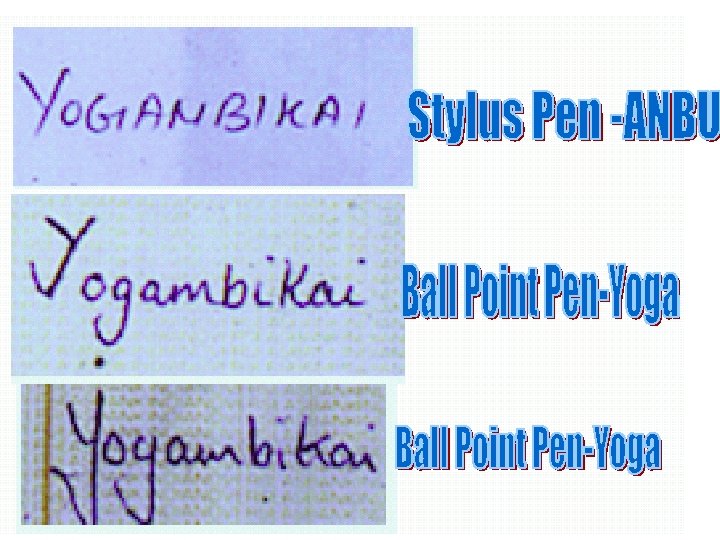 YOGANBIKAI
Stylus Pen -ANBU
Yogambikai
Ball Point Pen-Yoga
Yogambikai
Ball Point Pen-Yoga